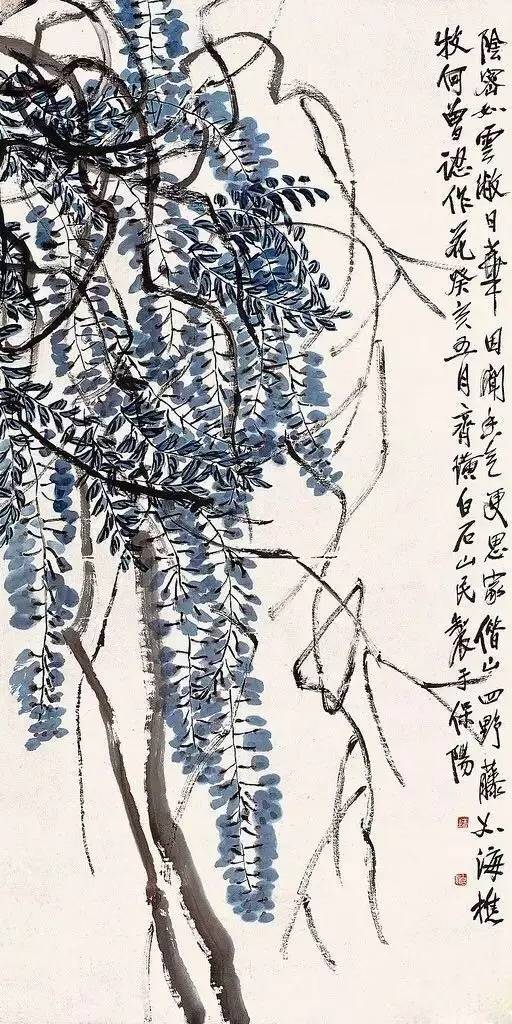 陰密如雲蔽日華因聞香气更思家借山四野藤如海樵
牧何曾認作花癸亥五月齊璜白石山民製于保陽